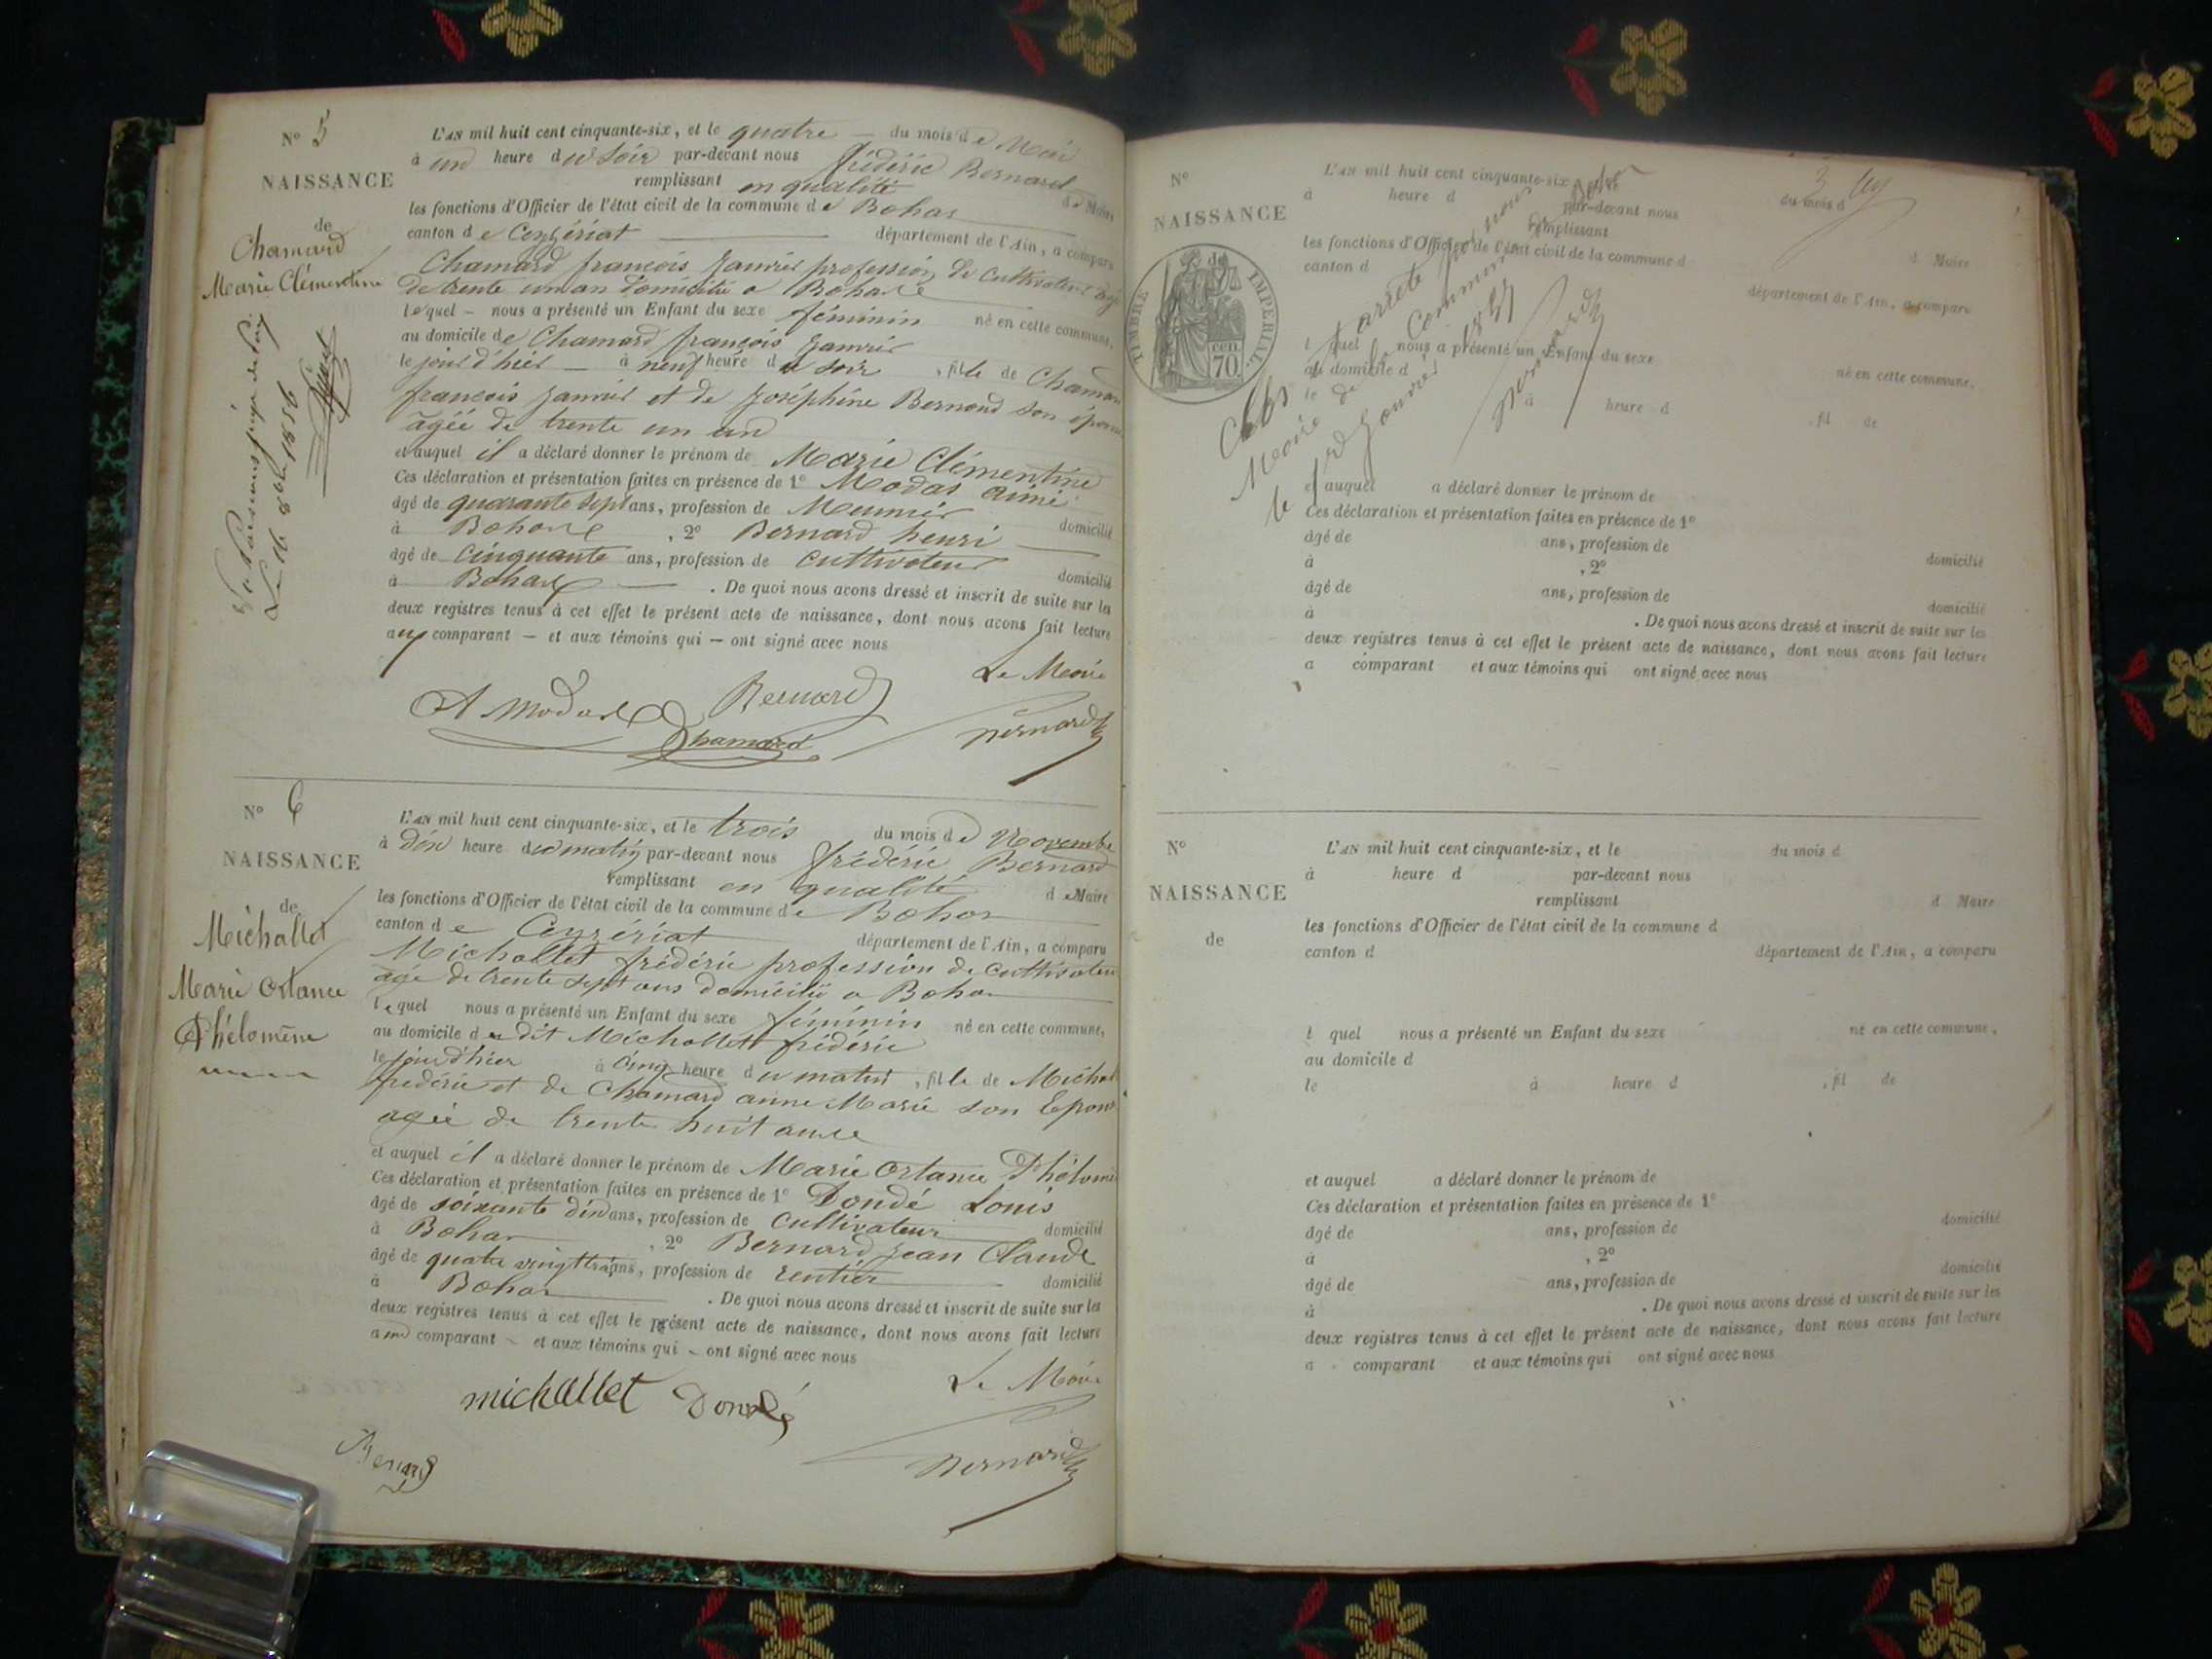 N° 5
NAISSANCE
de
Chamard
Marie Clémentine
Le 16 8bre 1856
L'AN mil huit cent cinquante-six, et le quatre — du mois de Mai
à une heure du Soir par-devant nous frédéric Bernard
remplissant en qualité de Maire
les fonctions d'Officier de l'état civil de la commune de Bohas
canton de Ceyzériat département de l'Ain, a comparu
Chamard françois Janvier profession de cultivateur âgé
de trente un an domicilié a Bohas
lequel — nous a présenté un Enfant du sexe féminin né en cette commune,
au domicile de Chamard françois Janvier
le jour d'hier — à neuf heure du soir, fille de Chamard
françois Janvier et de Joséphine Bernard son épouse
agée de trente un an
et auquel il a déclaré donner le prénom de Marie Clémentine
Ces déclaration et présentation faites en présence de 1° Modas aimé
âgé de quarante sept ans, profession de Meunier domicilié
à Bohas, 2° Bernard henri
âgé de cinquante ans, profession de cultivateur domicilié
à Bohas — . De quoi nous avons dressé et inscrit de suite sur les
deux registres tenus à cet effet le présent acte de naissance, dont nous avons fait lecture
au comparant — et aux témoins qui — ont signé avec nous
Le Maire
A Modas Bernard
Chamard Bernard
N° 6
NAISSANCE
de
Michallet
Marie Ortance
Phélomène
L'AN mil huit cent cinquante-six, et le trois du mois de Novembre
à dix heure du matin par-devant nous frédéric Bernard
remplissant en qualité de Maire
les fonctions d'Officier de l'état civil de la commune de Bohas
canton de Ceyzériat département de l'Ain, a comparu
Michallet frédéric profession de cultivateur
agé de trente sept ans domicilié a Bohas
lequel nous a présenté un Enfant du sexe féminin né en cette commune,
au domicile du dit Michallet frédéric
le jour d'hier à cinq heure du matin, fille de Michal
frédéric et de Chamard anne Marie son Epouse
agée de trente huit ans
et auquel il a déclaré donner le prénom de Marie Ortance Phélomè
Ces déclaration et présentation faites en présence de 1° Dondé Louis
âgé de soixante dix ans, profession de cultivateur domicilié
à Bohas, 2° Bernard Jean Claude
âgé de quatre vingt trois ans, profession de rentier domicilié
à Bohas . De quoi nous avons dressé et inscrit de suite sur les
deux registres tenus à cet effet le présent acte de naissance, dont nous avons fait lecture
au comparant — et aux témoins qui — ont signé avec nous
Le Maire
michallet Dondé
Bernard Bernard
N°
NAISSANCE
de
TIMBRE IMPÉRIAL
70 cen.
L'AN mil huit cent cinquante-six, et le du mois d
à heure d par-devant nous
remplissant d Maire
les fonctions d'Officier de l'état civil de la commune d
canton d département de l'Ain, a comparu
Clos et arrêté par nous
Maire de la Commune
le 1er Janvier 1857
Bernard
l quel nous a présenté un Enfant du sexe né en cette commune,
au domicile d
le à heure d , fil de
et auquel a déclaré donner le prénom de
Ces déclaration et présentation faites en présence de 1°
âgé de ans, profession de domicilié
à , 2°
âgé de ans, profession de domicilié
à . De quoi nous avons dressé et inscrit de suite sur les
deux registres tenus à cet effet le présent acte de naissance, dont nous avons fait lecture
a comparant et aux témoins qui ont signé avec nous
N°
NAISSANCE
de
L'AN mil huit cent cinquante-six, et le du mois d
à heure d par-devant nous
remplissant d Maire
les fonctions d'Officier de l'état civil de la commune d
canton d département de l'Ain, a comparu
l quel nous a présenté un Enfant du sexe né en cette commune,
au domicile d
le à heure d , fil de
et auquel a déclaré donner le prénom de
Ces déclaration et présentation faites en présence de 1°
âgé de ans, profession de domicilié
à , 2°
âgé de ans, profession de domicilié
à . De quoi nous avons dressé et inscrit de suite sur les
deux registres tenus à cet effet le présent acte de naissance, dont nous avons fait lecture
a comparant et aux témoins qui ont signé avec nous